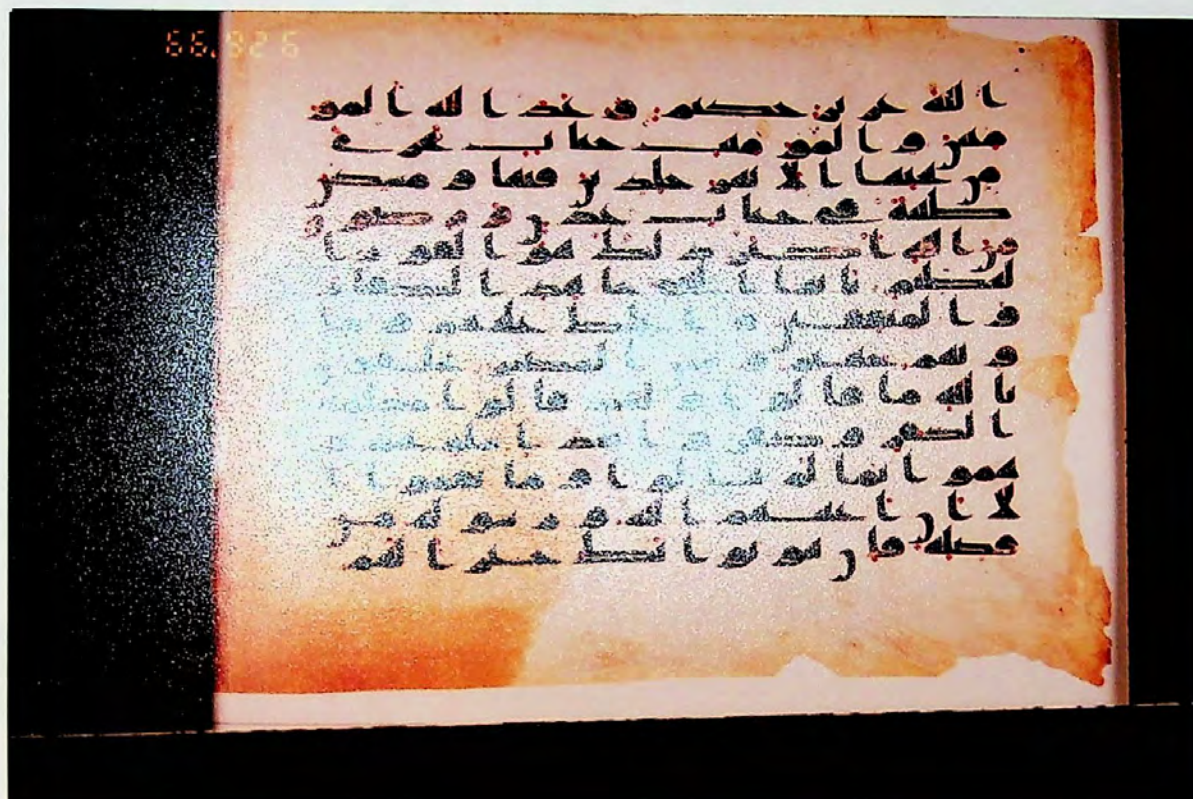 الله عزيز حكيم وعد الله المو
منين والمومنت جنات تجري
من تحتها الانهر خلدين فيها ومسكن
طيبة في جنات عدن ورضون
من الله اكبر ذلك هو الفوز ا
لعظيم يايها النبي جاهد الكفار
والمنفقين واغلظ عليهم وما
ويهم جهنم وبئس المصير يحلفون
بالله ما قالوا ولقد قالوا كلمة
الكفر وكفروا بعد اسلمهم و
هموا بما لم ينالوا وما نقموا ا
لا ان اغنيهم الله ورسوله من
فضله فان يتوبوا يك خيرا لهم